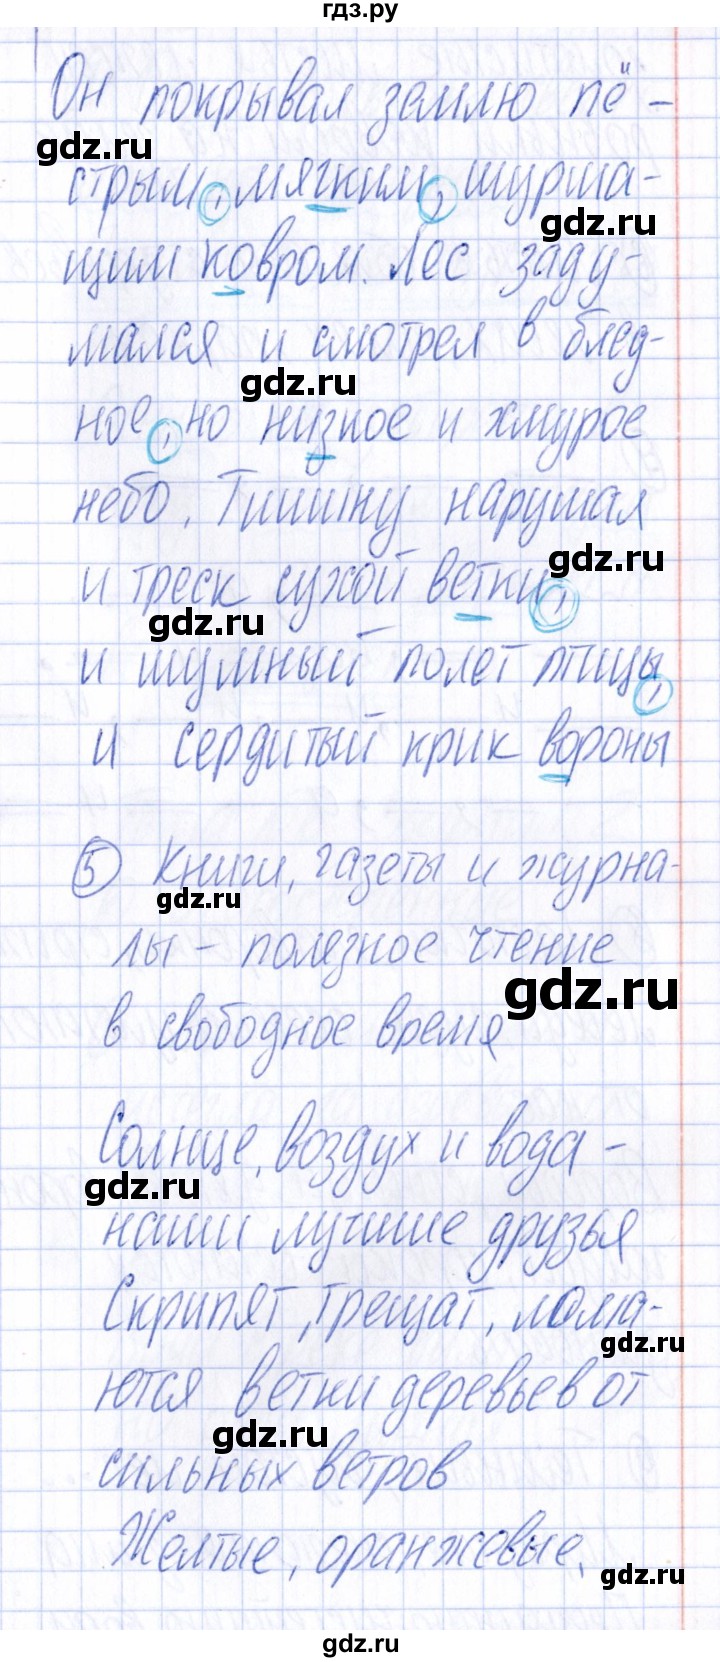 гдз.ру
Он покрывал землю пё-
gdz.ru
стрым, мягким, шурша-
gdz.ru
щим ковром. Лес заду-
мался и смотрел в блед-
gdz.ru
ное, но низкое и хмурое
небо. Тишину нарушал
gdz.ru
и треск сухой ветки,
gdz.ru
и шумный полет птицы,
и сердитый крик вороны
5 Книги, газеты и журна-
gdz.ru
лы – полезное чтение
gdz.ru
в свободное время
Солнце, воздух и вода –
gdz.ru
наши лучшие друзья
Скрипят, трещат, лома-
gdz.ru
ются ветки деревьев от
gdz.ru
сильных ветров
Желтые, оранжевые,
gdz.ru
gdz.ru